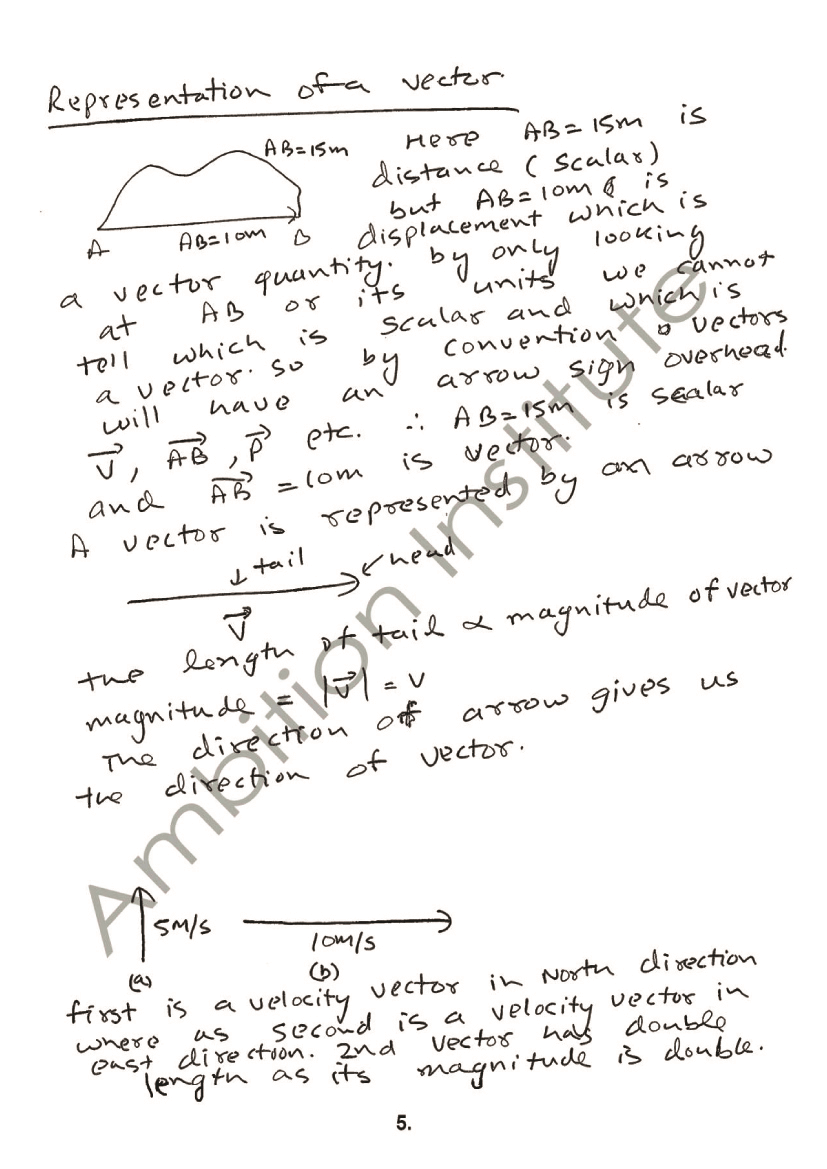 Representation of a vector.
AB=15m
Here AB=15m is
distance (scalar)
but AB=10m is
A AB=10m B displacement which is
a vector quantity. by only looking
at AB or its units we cannot
tell which is scalar and which is
a vector. so by convention vectors
will have an arrow sign overhead.
V⃗, AB⃗, P⃗ etc. ∴ AB=15m is scalar
and AB⃗ = 10m is vector.
A vector is represented by an arrow
↓ tail ↙ head
V⃗
the length of tail ∝ magnitude of vector
magnitude = |V⃗| = V
The direction of arrow gives us
the direction of vector.
5M/S
10m/s
(a) (b)
first is a velocity vector in North direction
where as second is a velocity vector in
east direction. 2nd vector has double
length as its magnitude is double.
5.
Ambition Institute